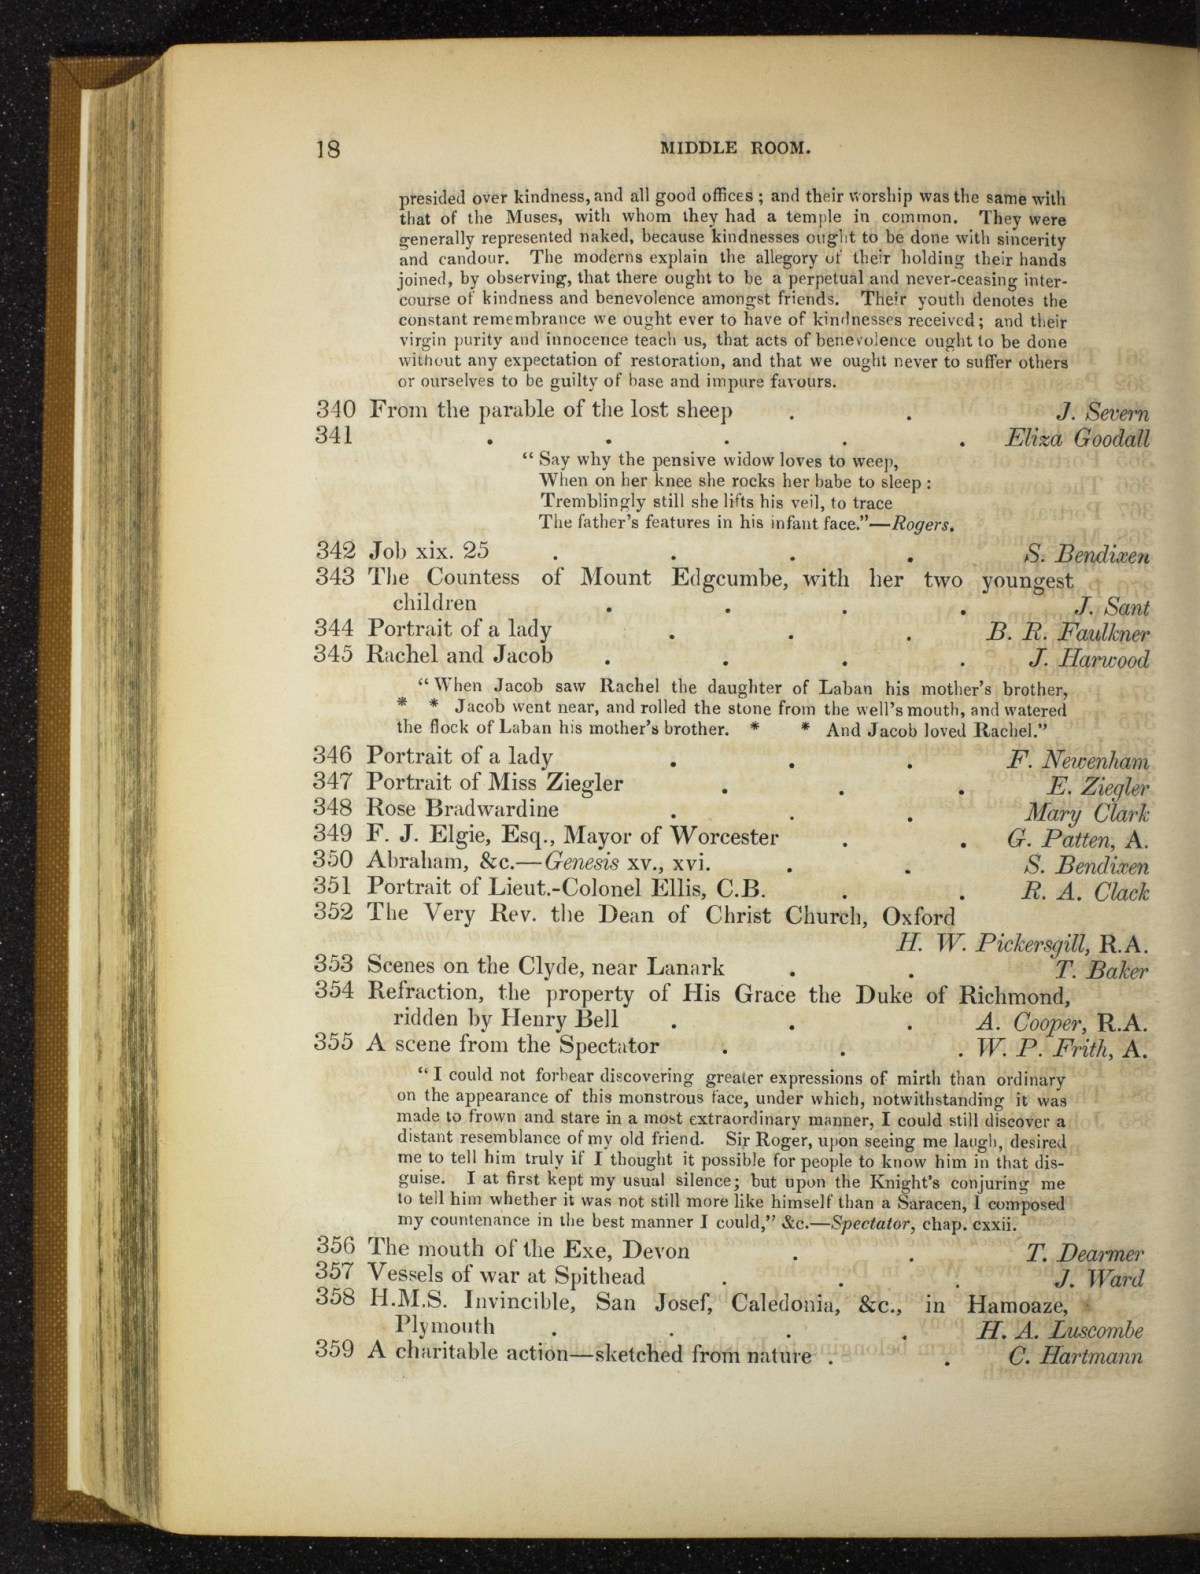 18
MIDDLE ROOM.
presided over kindness, and all good offices ; and their worship was the same with
that of the Muses, with whom they had a temple in common. They were
generally represented naked, because kindnesses ought to be done with sincerity
and candour. The moderns explain the allegory of their holding their hands
joined, by observing, that there ought to be a perpetual and never-ceasing inter-
course of kindness and benevolence amongst friends. Their youth denotes the
constant remembrance we ought ever to have of kindnesses received ; and their
virgin purity and innocence teach us, that acts of benevolence ought to be done
without any expectation of restoration, and that we ought never to suffer others
or ourselves to be guilty of base and impure favours.
340 From the parable of the lost sheep . . J. Severn
341 . . . . . Eliza Goodall
“ Say why the pensive widow loves to weep,
When on her knee she rocks her babe to sleep :
Tremblingly still she lifts his veil, to trace
The father’s features in his infant face.”—Rogers.
342 Job xix. 25 . . . . S. Bendixen
343 The Countess of Mount Edgcumbe, with her two youngest
children . . . . J. Sant
344 Portrait of a lady . . . B. R. Faulkner
345 Rachel and Jacob . . . . J. Harwood
“ When Jacob saw Rachel the daughter of Laban his mother’s brother,
* * Jacob went near, and rolled the stone from the well’s mouth, and watered
the flock of Laban his mother’s brother. * * And Jacob loved Rachel.”
346 Portrait of a lady . . . F. Newenham
347 Portrait of Miss Ziegler . . . E. Ziegler
348 Rose Bradwardine . . . Mary Clark
349 F. J. Elgie, Esq., Mayor of Worcester . . G. Patten, A.
350 Abraham, &c.—Genesis xv., xvi. . . S. Bendixen
351 Portrait of Lieut.-Colonel Ellis, C.B. . . R. A. Clack
352 The Very Rev. the Dean of Christ Church, Oxford
H. W. Pickersgill, R.A.
353 Scenes on the Clyde, near Lanark . . T. Baker
354 Refraction, the property of His Grace the Duke of Richmond,
ridden by Henry Bell . . . A. Cooper, R.A.
355 A scene from the Spectator . . . W. P. Frith, A.
“ I could not forbear discovering greater expressions of mirth than ordinary
on the appearance of this monstrous face, under which, notwithstanding it was
made to frown and stare in a most extraordinary manner, I could still discover a
distant resemblance of my old friend. Sir Roger, upon seeing me laugh, desired
me to tell him truly if I thought it possible for people to know him in that dis-
guise. I at first kept my usual silence; but upon the Knight’s conjuring me
to tell him whether it was not still more like himself than a Saracen, I composed
my countenance in the best manner I could,” &c.—Spectator, chap. cxxii.
356 The mouth of the Exe, Devon . . T. Dearmer
357 Vessels of war at Spithead . . . J. Ward
358 H.M.S. Invincible, San Josef, Caledonia, &c., in Hamoaze,
Plymouth . . . . H. A. Luscombe
359 A charitable action—sketched from nature . . C. Hartmann